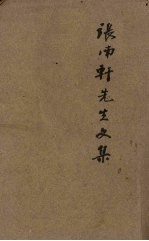 張雨軒先生文集